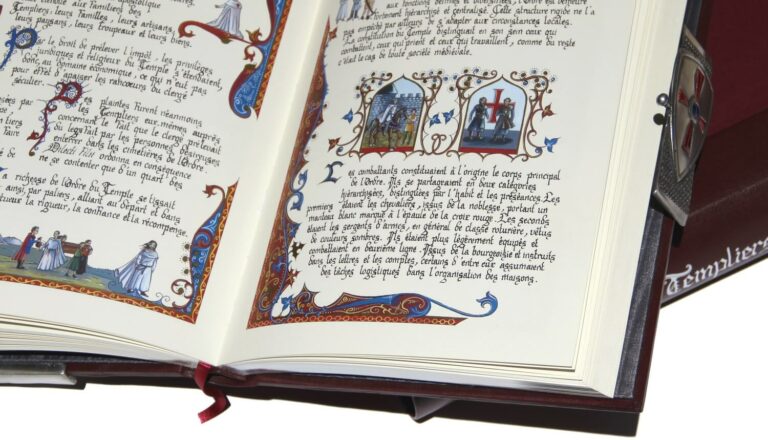 clientèle aux Familiers des
Templiers: leurs Familles, leurs artisans,
leurs paysans, leurs troupeaux et leurs biens.
Par le droit de prélever l'impôt, les privilèges
juridiques et religieux du Temple s'étendaient,
donc, au domaine économique, ce qui n'eut pas
pour effet d'apaiser les rancœurs du clergé
séculier.
Des plaintes furent néanmoins
les Templiers eux-mêmes auprès
concernant le fait que le clergé prélevait
du legs fait par les personnes désireuses
enterrer dans les cimetières de l'Ordre.
ordonna en conséquence
ne se contenter que d'un quart des
a richesse de l'Ordre du Temple se tissait
ainsi, par paliers, alliant au départ et dans
la rigueur, la confiance et la récompense.
fortement hiérarchisé et centralisé. Cette structure rigide ne l'a
pas empêché par ailleurs de s'adapter aux circonstances locales.
La constitution du Temple distinguait en son sein ceux qui
combattent, ceux qui prient et ceux qui travaillent, comme du reste
c'était le cas de toute société médiévale.
Les combattants constituaient à l'origine le corps principal
de l'Ordre. Ils se partageaient en deux catégories
hiérarchisées, distinguées par l'habit et les préséances. Les
premiers étaient les chevaliers, issus de la noblesse, portant un
manteau blanc marqué à l'épaule de la croix rouge. Les seconds
étaient les sergents d'armes, en général de classe roturière, vêtus
de couleurs sombres. Ils étaient plus légèrement équipés et
combattaient en deuxième ligne. Issus de la bourgeoisie et instruits
dans les lettres et les comptes, certains d'entre eux assumaient
des tâches logistiques dans l'organisation des maisons.
Templiers